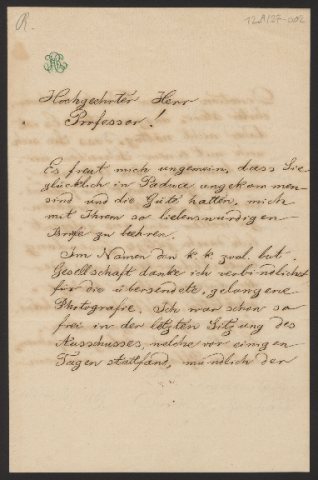 R.
12A/27-002
Hochgeehrter Herr
Professor!
Es freut mich ungemein, dass Sie
glücklich in Padua angekommen
sind und die Güte hatten, mich
mit Ihrem so liebenswürdigen
Briefe zu beehren.
Im Namen der k. k. zool. bot.
Gesellschaft danke ich verbindlichst
für die übersendete, gelungene
Photografie. Ich war schon so
frei in der letzten Sitzung des
Ausschusses, welche vor einigen
Tagen stattfand, mündlich der